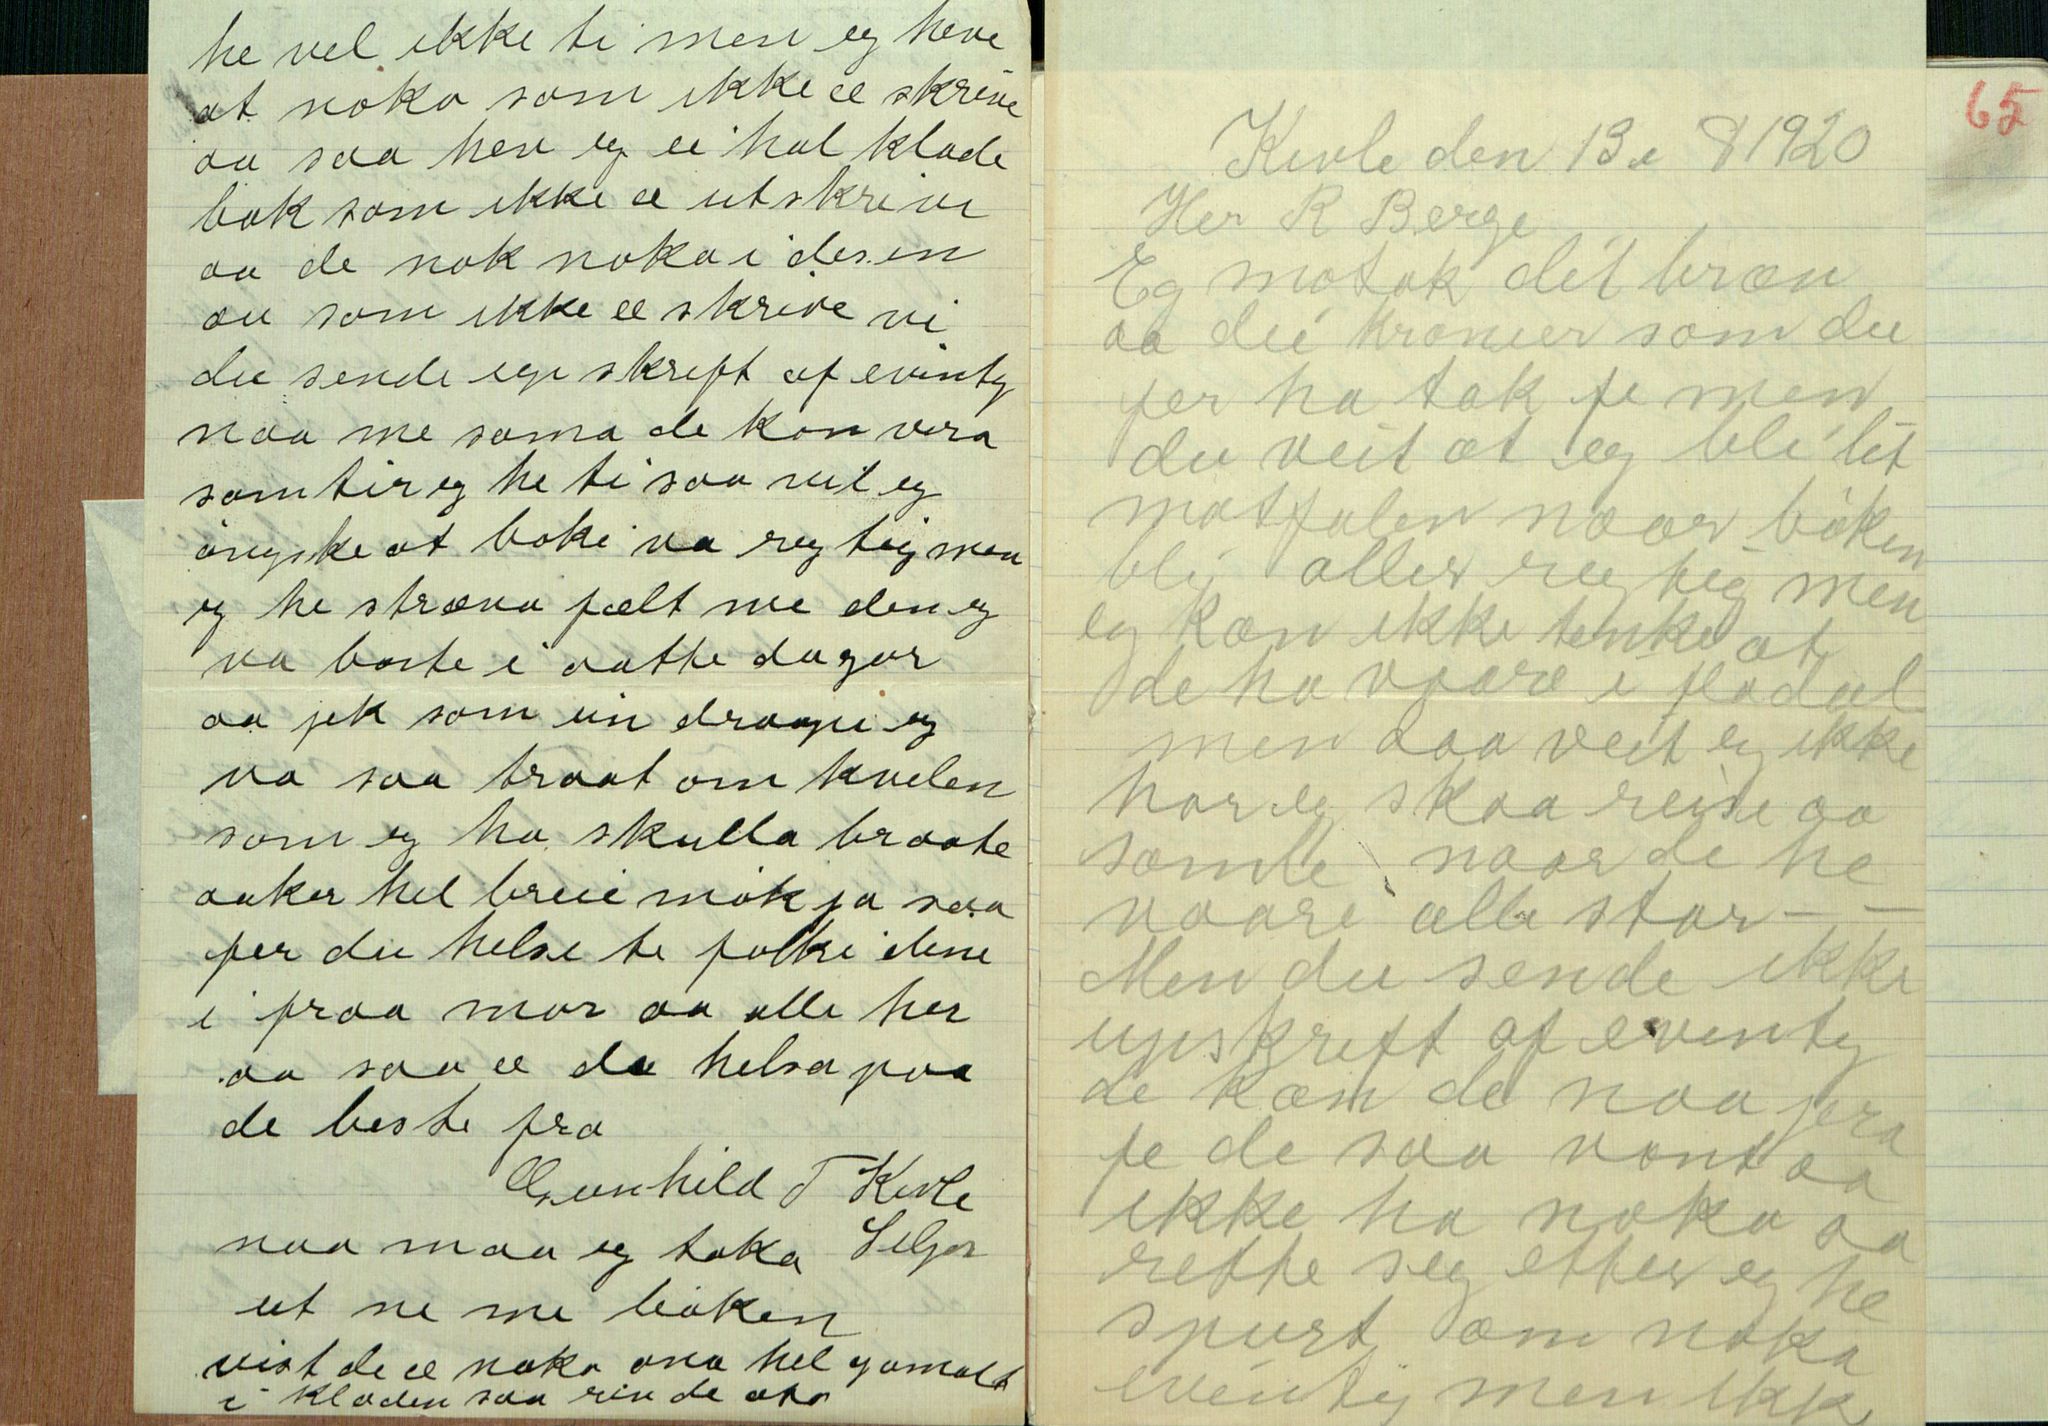 he vel ikke ti men eg heve
at noko som ikke ee skrive
aa saa hev eg ei hal klade
bok som ikke ee utskrive
aa de nok noka i des en
au som ikke ee skrive vi
du sende upskreft af evinty
naa me soma de kon vera
somtir eg he ti saa vil eg
önyske at boki va regtig men
eg he stræva fælt me den eg
va borte i aatte dagar
aa jek som ein draape eg
va saa traat om kvelen
som eg ha skulla braate
aaker hel breie mök ja saa
fer du helse te folki dine
i fraa mor aa alle her
aa saa ee du helsa paa
de beste fra
Gunhild T Kivle
naa maa eg taka Seljor
ut ne me böken
vist de ee noko ana hel gamalt
i kladen saa riv de
65
Kivle den 13 e 8 1920
Her R Berge
Eg motok dit bræv
aa die kroner som du
fer ha tak fe men
du veit at eg bli lit
motfalen naar böken
bli aller regtig men
eg kæn ikke tenke at
de ha vaare i fladal
men daa veit eg ikke
hor eg skaa reise aa
samle naar de he
vaare alle star - -
Men du sende ikke
upskreft af eventy
de kæn de naa jera
fe de saa vont aa
ikke ha noka aa
rette seg etter eg he
spurt æm noka
eventy men ikk